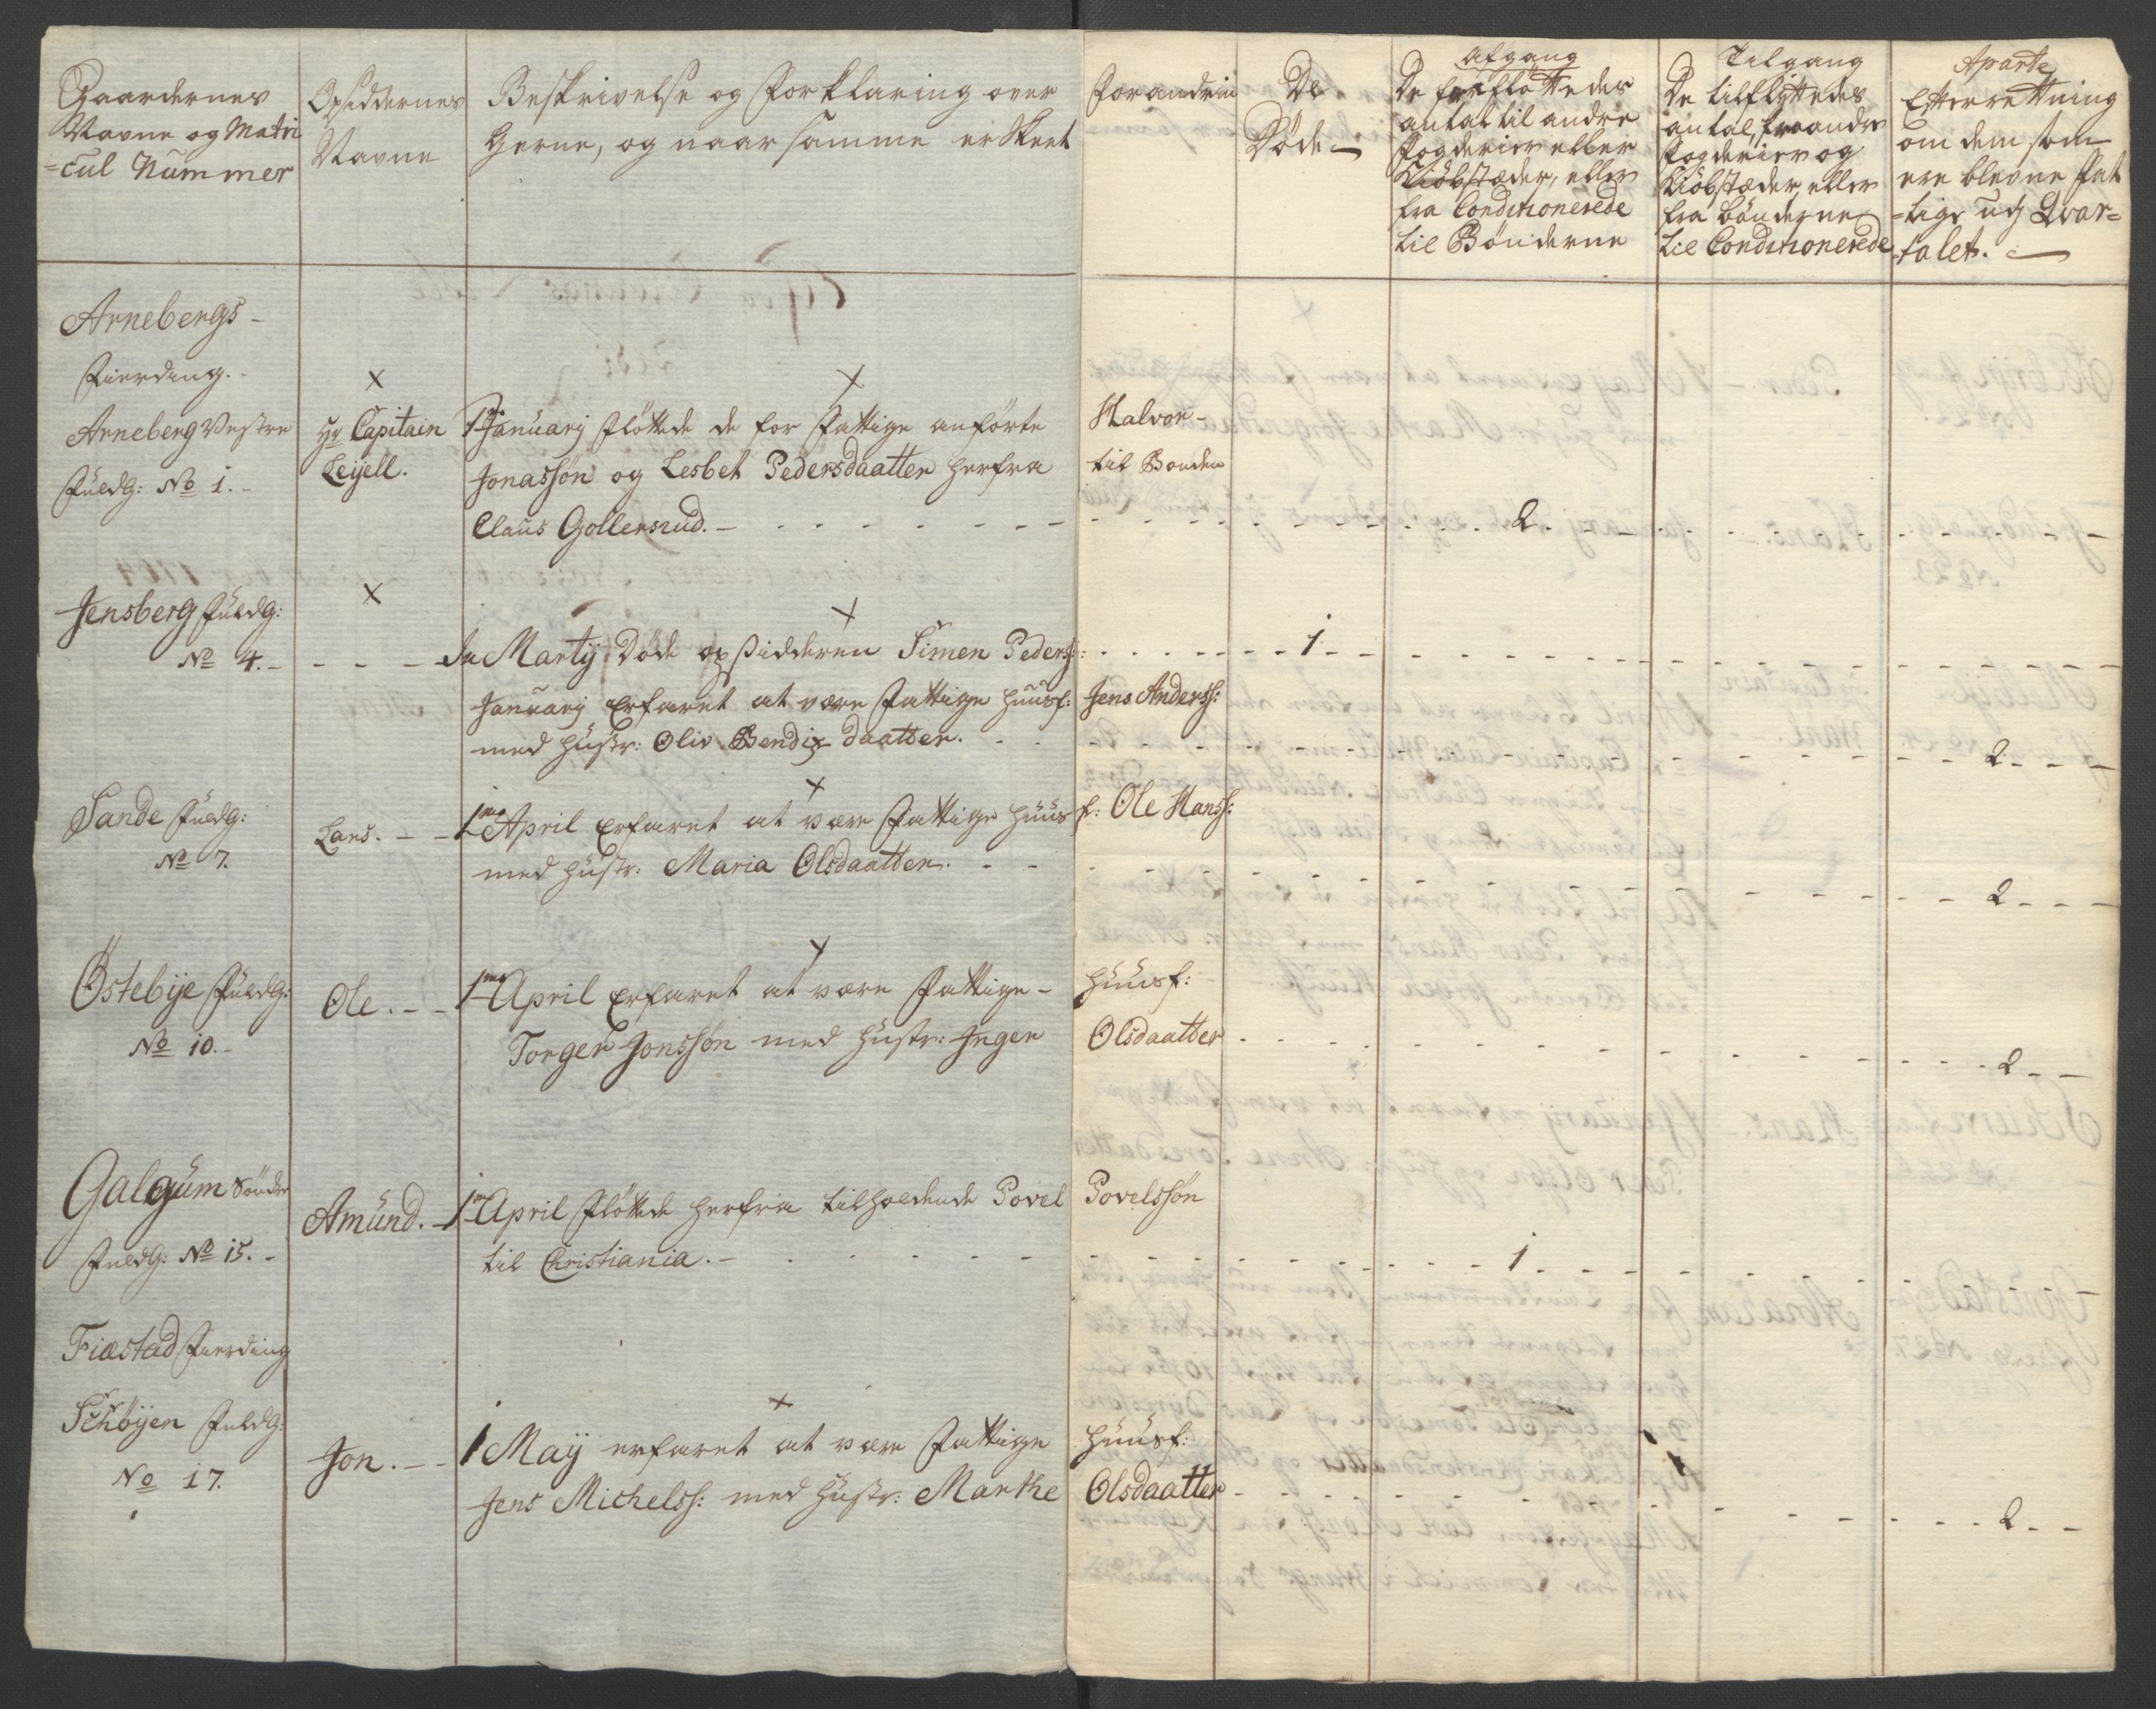 Gaardernes
Navne og Matri
=cul Nummer
Opsiddernes
Navne
Beskrivelse og Forklaring over
gerne, og naar samme er Skeet
Forandrin
De
Døde
Afgang
De frafløttedes
antal til andre
Fogderier eller
Kiøbstæder, eller
fra Conditionerede
til Bønderne
Tilgang
De tilflyttedes
antal, fra andre
Fogderier og
Kiøbstæder, eller
fra bønderne
til Conditionerede
Aparte
Efterretning
om dem som
ere blevne Fat
=tige udj Qvar=
talet.
Arnebergs
Fierding.
Arneberg Vestre
Fuldg: No 1.
Hr Capitain
Leijell.
1 January Fløttede de for Fattige anførte
Halvor
Jonassøn og Lesbet Pedersdaatter herfra
til Bonden
Claus Gollersrud. 2.
Jensberg Fuldg:
No 4.
In Martij Døde opsidderen Simen Peders: 1
January Erfaret at være Fattige huusf:
Jens Anderss:
med hustr: Oliv Bendixdaatter. 2
Sande Fuldg:
No 7.
Lars.
1 April Erfaret at være Fattige huus
f: Ole Hanss:
med hustr: Maria Olsdaatter. 2
Östebije Fuldg:
No 10.
Ole.
1 April Erfaret at være Fattige
huusf:
Torger Jonssøn med hustr: Inger
Olsdaatter 2
Galgum Søndre
Fuldg: No 15.
Amund.
1 April Fløttede herfra tilholdende Povel
Povelssøn
til Christiania. 1
Fiæstad Fierding
Schöyen Fuldg:
No 17.
Jon.
1 Maij erfaret at være Fattige
huusf:
Jens Michelss: med hustr: Marthe
Olsdaatter 2